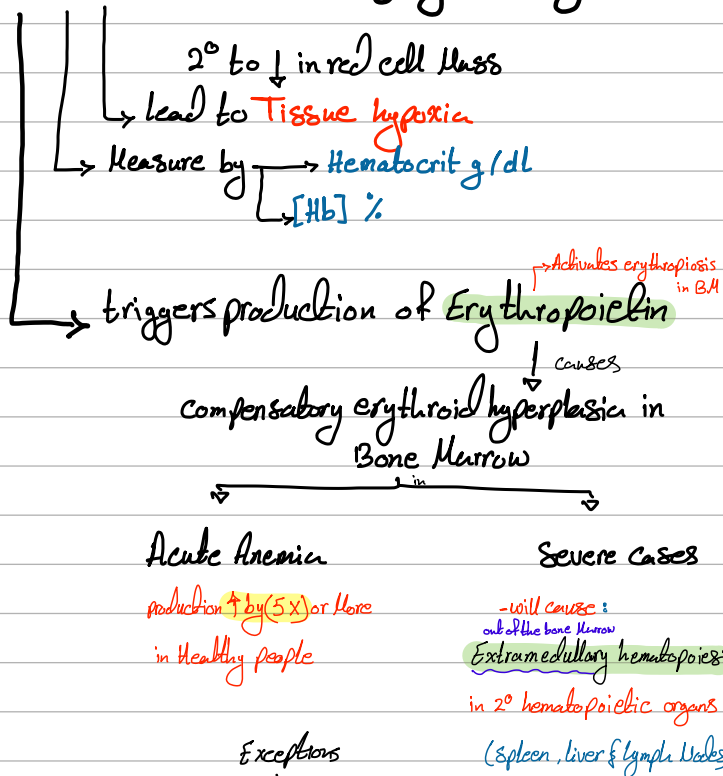 2° to ↓ in red cell Mass
→ lead to Tissue hypoxia
→ Measure by → Hematocrit g/dl
→ [Hb] %
→ Activates erythropiosis
in BM
→ triggers production of Erythropoietin
↓ causes
compensatory erythroid hyperplasia in
Bone Marrow
in
Acute Anemia
Severe cases
production ↑ by (5X) or More
in Healthy people
-will cause :
out of the bone Marrow
Extramedullary hematopoies
in 2° hematopoietic organs
(Spleen, liver & lymph Nodes
Exceptions